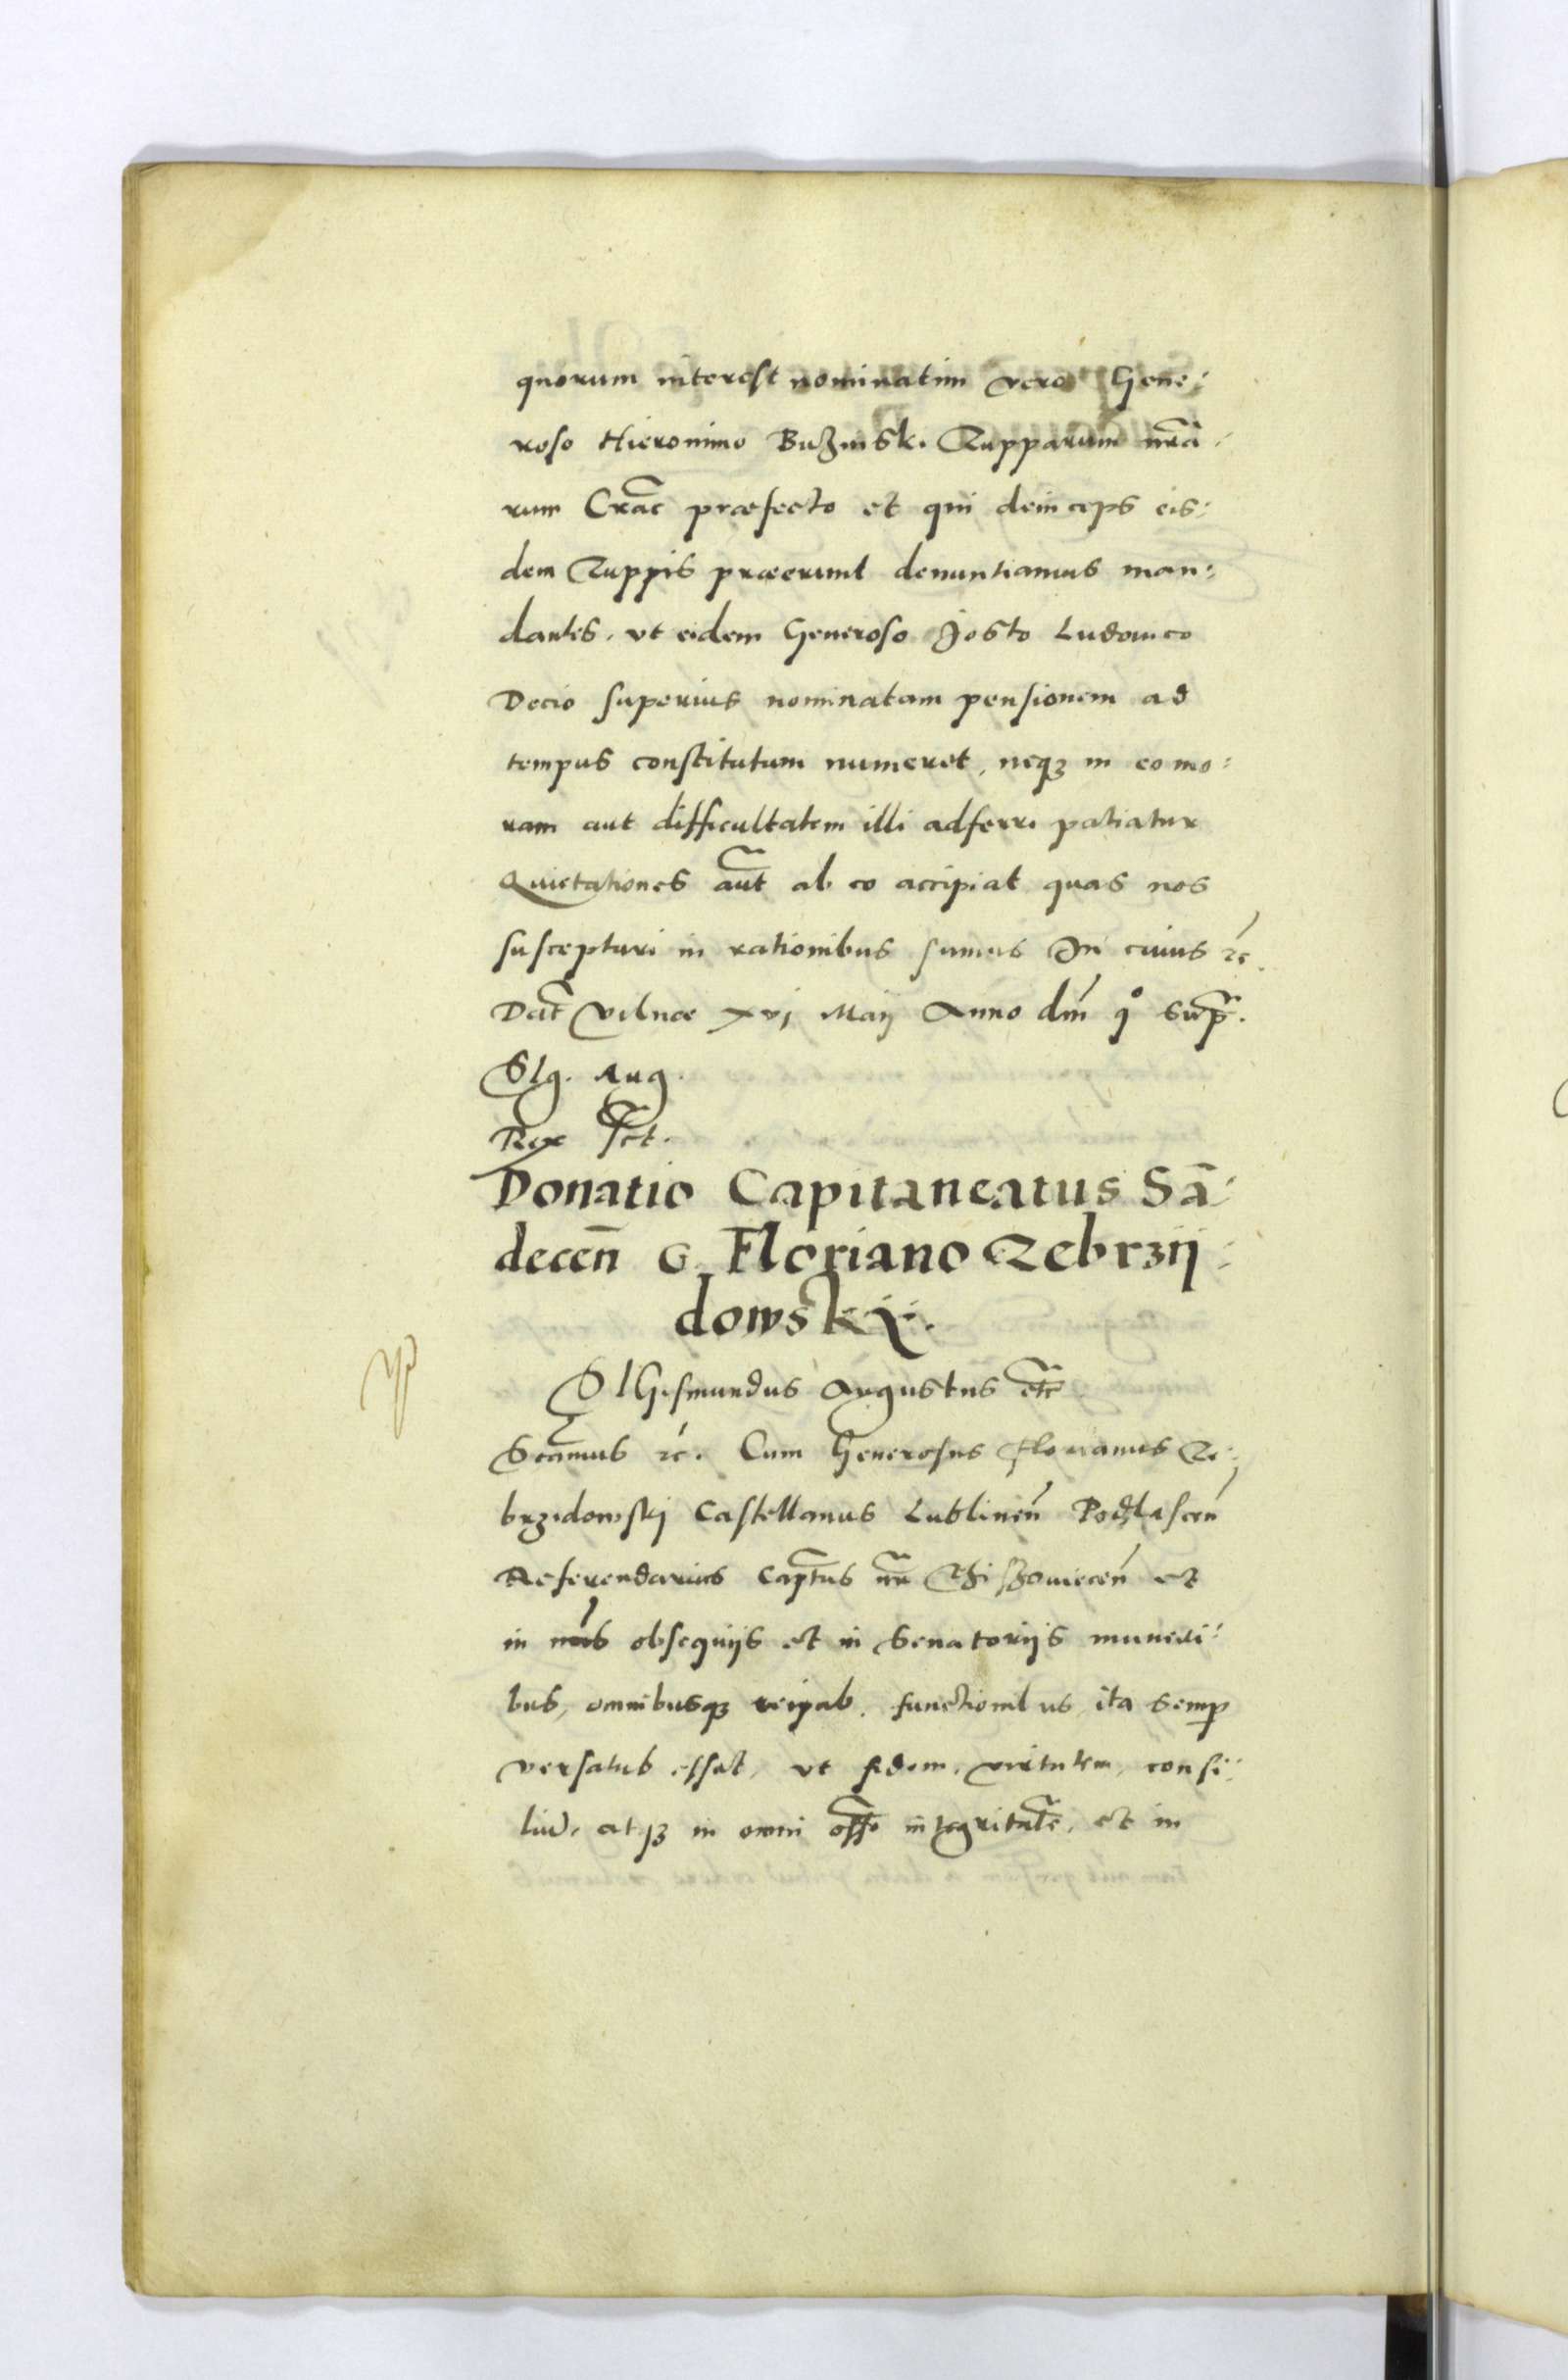 quorum interest nominatim vero Gene:
roso Hieronimo Buzinsk. Zupparum nrã:
rum Crac̃ præfecto et qui deinceps eis:
dem Zuppis præerunt denuntiamus man:
dantes, ut eidem Generoso Josto Ludovico
Decio superius nominatam pensionem ad
tempus constitutum numeret, neqz in eo mo:
ram aut difficultatem illi adferri patiatur
Quietationes aut̃ ab eo accipiat quas nos
suscepturi in rationibus sumus In cuius rc̃.
Dat̃ Vilnæ xvj Maij Anno dm̃ qº supr̃.
Sig. Aug.
Rex sct.
Donatio Capitaneatus Sã:
decen̄ G. Floriano Zebrzij:
dowskÿ.
SIGismundus Augustus etc̃
Scamus̃ rc̃. Cum Generosus Florianus Ze:
brzidowskj Castellanus Lublinen̄ Podlascen̄
Referendarius Capt̃us nr̃ et
in nrĩs obsequijs et in Senatorijs muneri:
bus, omnibusqz reipub. functionibus ita semp̱
versatus esset, ut fidem, virtutem, consi:
liũ, atqz in omni off̃o integritatẽ, et in